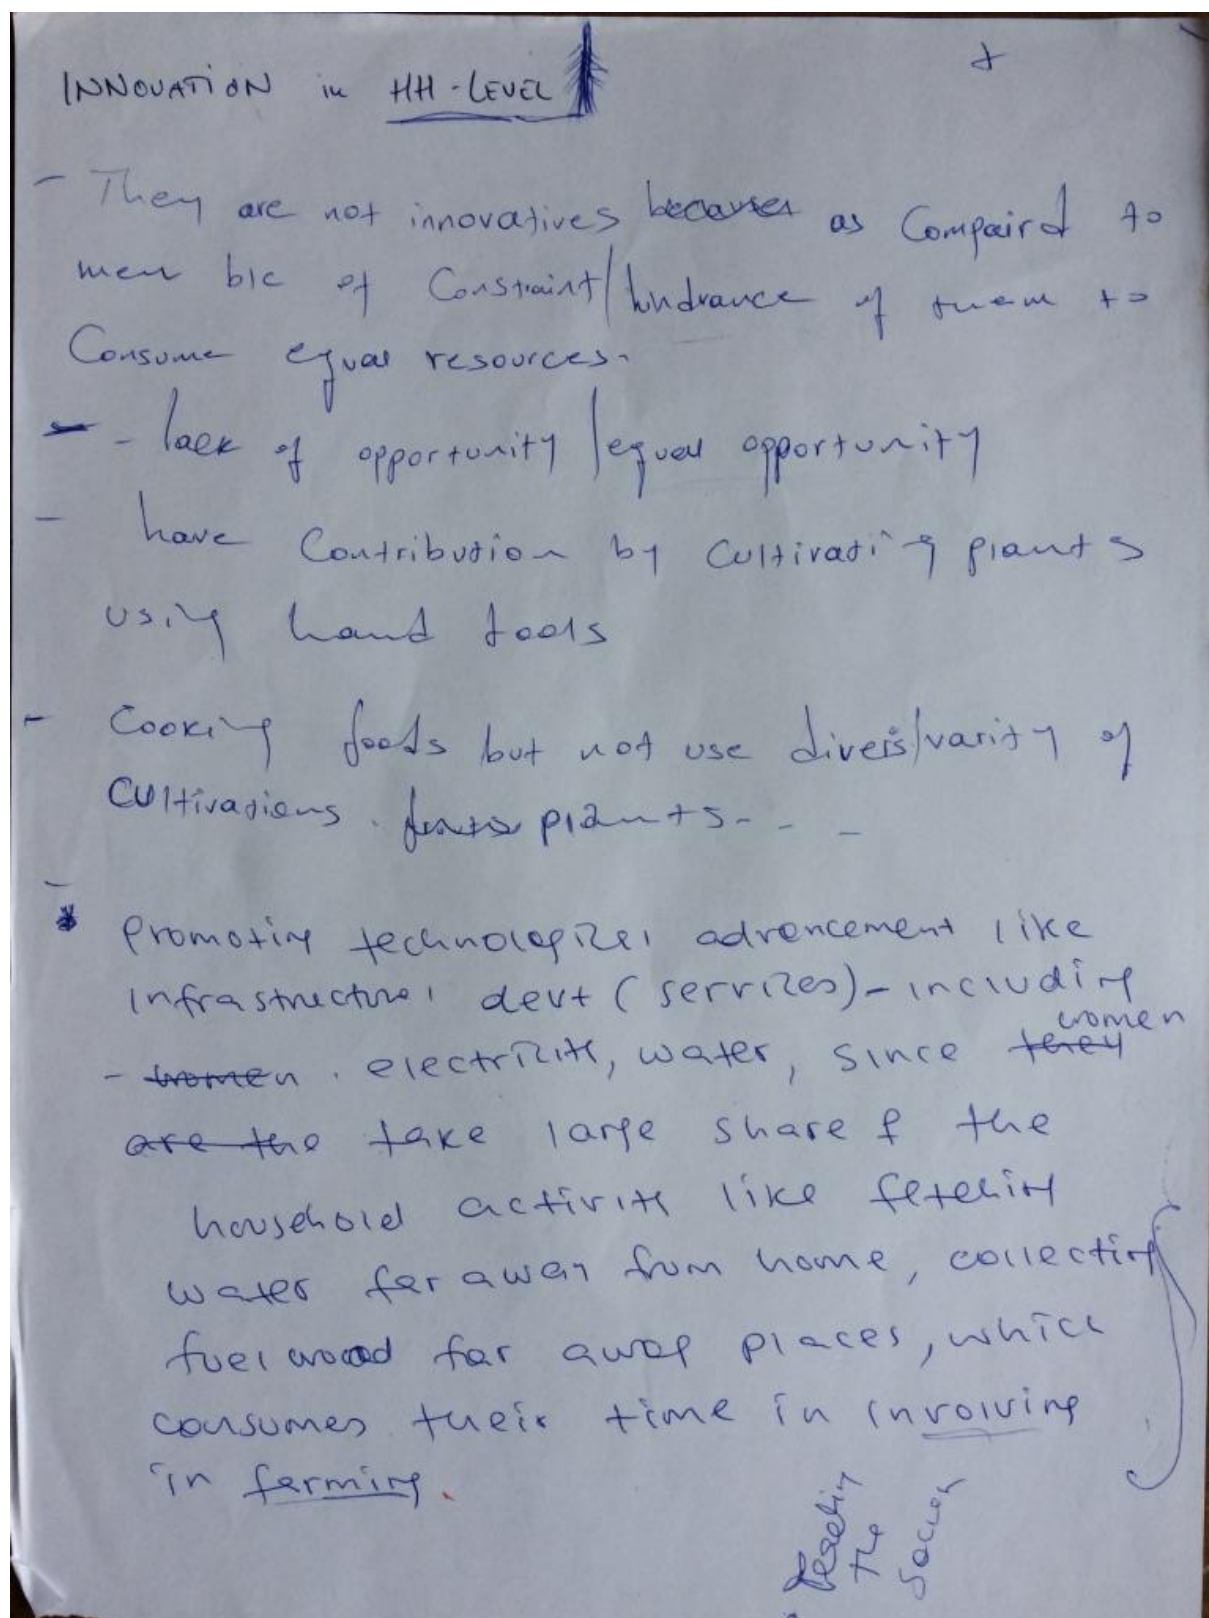 INNOVATION in HH-LEVEL
- They are not innovatives because as Compaird to
men b/c of Constraint/hindrance of them to
Consume equal resources.
- - lack of opportunity /equal opportunity
- have Contribution by cultivating plants
using hand tools
- Cooking foods but not use divers/varity of
cultivations. plants - - -
- promoting technological advancement like
infrastructural devt (services) - including
- women. electricity, water, since they women
are the take large share of the
household activity like fetching
water far away from home, collecting
fuel wood far away places, which
consumes their time in involving
in farming.
the